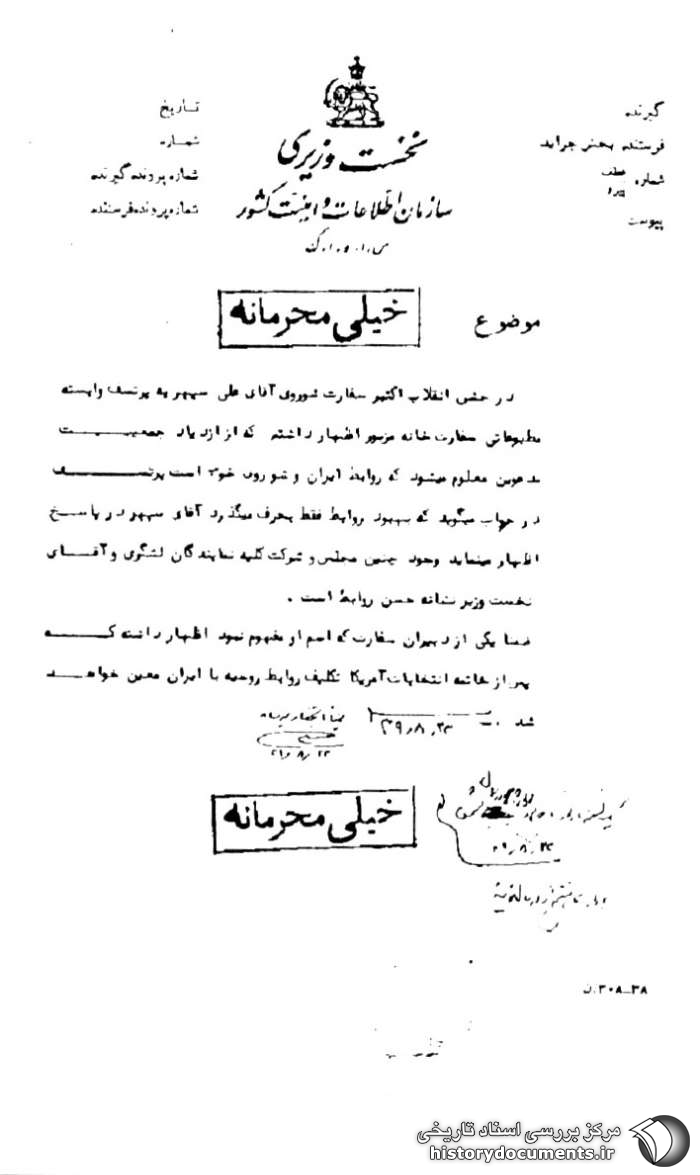 گیرنده
فرستنده بخش جراید
شماره عطف پیرو
پیوست
نخست وزیری
سازمان اطلاعات و امنیت کشور
س.ا.و.ا.ک
تاریخ
شماره
شماره پرونده گیرنده
شماره پرونده فرستنده
موضوع
خیلی محرمانه
در جشن انقلاب اکتبر سفارت شوروی آقای علی سپهر به پرنسف وابسته
مطبوعاتی سفارت خانه مزبور اظهار داشته که از ازدیاد جمعیت
مدعوین معلوم میشود که روابط ایران و شوروی خوب است پرنسف
در جواب میگوید که بهبود روابط فقط بحرف میگذرد آقای سپهر در پاسخ
اظهار مینماید وجود چنین مجلس و شرکت کلیه نمایندگان لشگری و آقای
نخست وزیر نشانه حسن روابط است .
ضمنا یکی از دبیران سفارت که اسم او مفهوم نبود اظهار داشته که
پس از خاتمه انتخابات آمریکا تکلیف روابط روسیه با ایران معین خواهد
شد .
۳۹٫۸٫۲۳
خیلی محرمانه
۳۰۸-۳۸.ن
مرکز بررسی اسناد تاریخی
historydocuments.ir